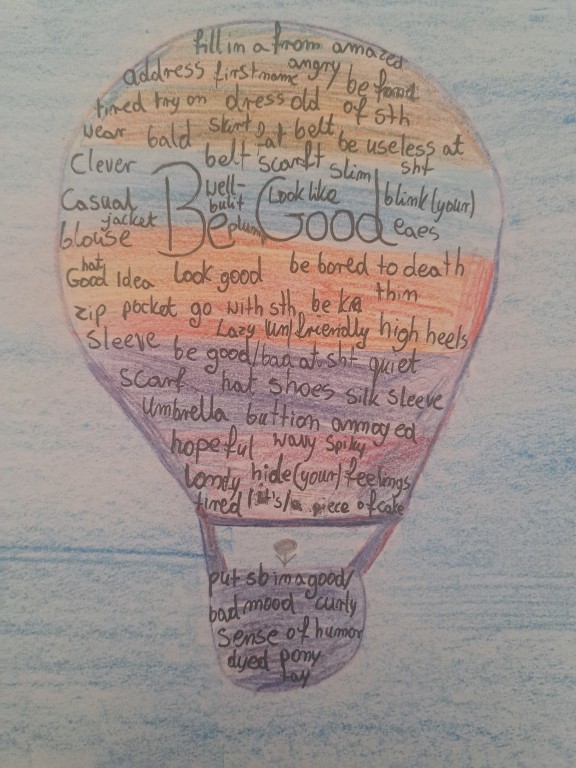 fill in a from amazed
address firstname angry be fond
tired try on dress old of sth
wear bald skirt fat belt be useless at
Clever belt scarft slim sht
Be Good
well-built Look like blink(your)
Casual plum eaes
jacket
blouse
hat
Good Idea Look good be bored to death
thim
zip pocket go with sth be
Lazy un/friendly high heels
Sleeve be good/baa at sht quiet
Scarf hat shoes silk sleeve
Umbrella buttion ammoyed
hopeful wavy Spiky
hide(your)feelings
tired it's/a piece of cake
put sb im a good/
bad mood curly
Sense of humor
dyed pony
tay